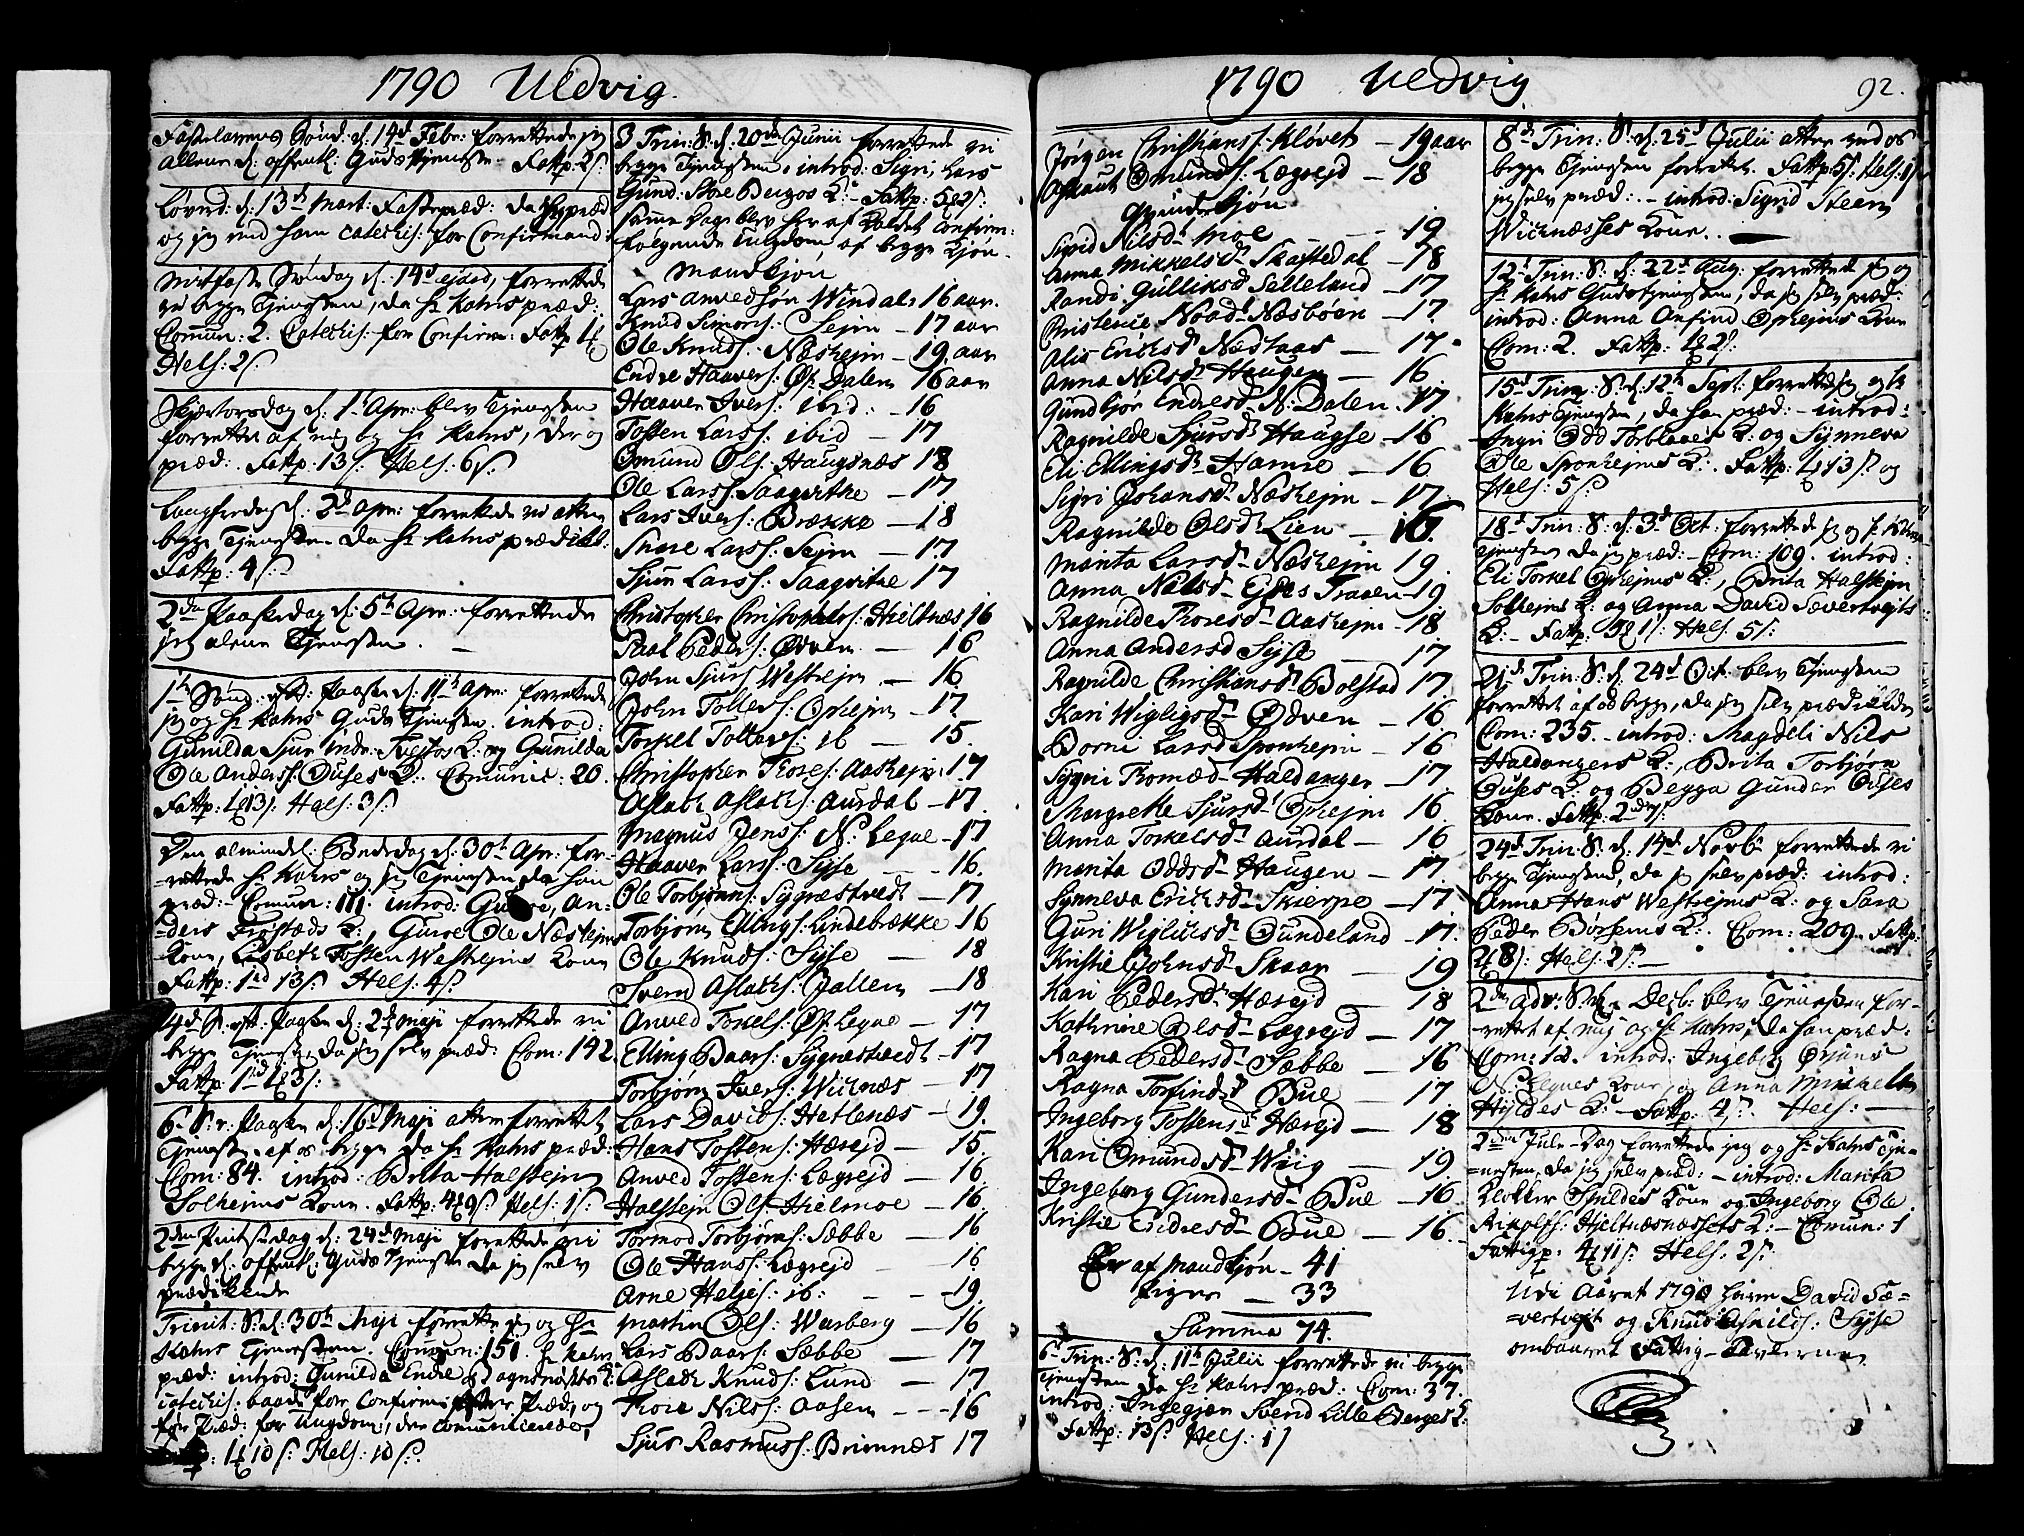 1790 Uldvig
Fastelavens Sønd: d. 14d Febr: forrettede jeg
allene d: offentl: Guds Tjenesten. Fattp: 2s.
Løverd: d: 13d Mart: Fasteprad: da præd
og jeg med ham catechis: for Confirmand:
Midfaste Søndag d. 14d ejusd, forrettede
vi begge Tjenesten, da Hr Kahrs præd:
Comun: 2. Catechis: for Confirm: Fattp
Hels: 2s.
Skjertorsdag d. 1 Apr: blev Tjenesten
forrettet af mig og Hr Kahrs, der og
præd: Fattp: 13s. Hels: 6s.
Langfredag d. 2d Apr: forrettede vi atter
begge Tjenesten da Hr Kahrs prædiket:
Fattp: 4s.
2den Paaskedag d. 5t Apr: forrettede
jeg alene Tjenesten.
1te Sønd: eft: Paaske d. 11t Apr: forrettede
jeg og Hr Kahrs Guds Tjenesten. introd:
Gunilda Sjur indr: Tvejtos K: og Gunilda
Ole Anders: Ouses K: Comunic: 20.
Fattp: 13s. Hels: 3s.
Den almindel: Bededag d. 30t Apr: for-
-rettede Hr Kahrs og jeg Tjenesten da han
præd: - Comun: 111. introd: An-
-ders K:, Guroe Ole Næshejms
Kone, Lisbeth Tosten Westrejms Kone
Fattp: 1rd 13s. Hels: 4s.
4d S: eft: Paaske d: 2d Maji forrettede vi
begge Tjenesten, da jeg selv præd: Com: 142
Fattp: 1rd
6 S: e: Paaske d: 16d Maji atter forrettet
Tjenesten af os begge da Hr Kahrs præd:
Com: 84. introd: Brita Halstejn
Solhejms Kone. Fattp: 9s. Hels: 1s.
2den Pintsedag d: 24d Maji forrettede vi
begge d: offentl: Guds Tjenesten da jeg selv
prædikede
Trinit: S: d: 30t Maji forrettede jeg og Hr
Kahrs Tjenesten. Comun: 151. Hr Kahrs
præd: introd: Gunilda Endre
catechis: baade for Confirm: efter Præd: og
før Præd: for Ungdom, der communicerede,
10s. Hels: 10s.
3 Trin: S: d. 20de Junii forrettede vi
begge Tjenesten, introd: Sigri, Lars
Gund: Store Bergos K: - Fattp:
samme Dage blev her af Kaldet Confirm:
følgende Ungdom af begge Kjøn.
Mandkjøn
Lars Anvedsøn Windal: 16 aar.
Knud Simons: Sejm - 17 aar
Ole Knuds: Næshejm - 19. aar
Endre Haavers: Øf. Dalen 16 aar
Haaver Ivers: ibid: - 16
Tosten Larss: ibid - 17
Omund Ols: Haugsnæs 18
Ole Larss: Saagvithe - 17
Lars Ivers: Brække - 18
Snare Larss: Sejm - 17
Sjur Larss: Saagvithe 17
Christopher Christophers: Hieltnæs 16
Paal Peders: Ødven - 16
John Sjurs: Westrejm - 16
John Tollevs: Ophejm - 17.
Torkel Tollevs: ib - 15.
Christopher Thores: Aashejm: 17
Aslach Aslachs: Aurdal - 17.
Magnus Jens: N. Leqve - 17
Haaver Larss: Sysse - 16.
Ole Torbjørns: Sygnestvedt - 17
Torbjørn Ellings: Lindebrække 16
Ole Knuds: Sysse - 18
Svend Aslachs: Jallem - 18
Anved Torkels: Øf. Leqve - 17
Elling Baars: Sygnestvedt - 17
Torbjørn Ivers: Wichnæs - 17
Lars Davids: Hetlenæs - 19.
Hans Tostens: Hæreid - 15.
Anved Tostens: Lægrejd - 16
Halstejn Ols: Hielmoe - 16.
Tormod Torbjørns: Sæbbe - 16
Ole Hanss: Lægrejd - 16
Arne Heljes: ib: - 19.
Morten Ols: Warberg - 16
Lars Baars: Sæbbe - 17
Aslach Knuds: Lund - 17
Thore Nilss: Aasen - 16
Sjur Rasmuss: Brimnæs 17
1790 Uldvig
92.
Jørgen Christians: Kløvet - 19 aar
Aslach Omunds: Lægrejd - 18
Qvindekjøn
Sigrid Nilsd: Moe - 19
Anna Mikkelsd: Skaftedal - 18
Randi Gulliksd Selleland - 17
Christence Noad: Næsbøen - 17
Alis Erichsd Nedlaas - 17.
Anna Nilsd: Haugen - 16
Gundbjør Endresd: N: Dalen. 17.
Ragnilde Sjursd: Haugse - 16
Eli Ellingsd: Hamre - 16
Sigri Johansd: Næshejm - 17.
Ragnilde Olsd: Lien - 16.
Marita Larsd: Næshejm 19.
Anna Nilsd Ejdes Traaen - 19
Ragnilde Thoresd: Aashejm - 18
Anna Andersd Sysse - 17
Ragnilde Christiansd: Bolstad 17.
Kari Wigligsd: Ødven - 16
Borni Larsd Sponhejm - 16
Sygni Thomæd: Haldanger - 17
Margrethe Sjursd: Ophejm 16.
Anna Torkelsd: Aurdal - 16
Marita Oddsd: Haugen - 17.
Synneva Erichsd: Skierpe - 17
Guri Wiglicsd Oundeland - 17.
Kristie Johnsd: Skaar - 19
Kari Pedersd: Hæreid - 18
Kathrine Olsd: Lægrejd - 17
Ragna Pedersd Sæbbe - 16
Ragna Torfindsd: Bue - 17
Ingeborg Tostensd: Hæreid - 18
Kari Omundsd: Wiig - 19
Ingeborg Gundersd: Bue - 16
Kristie Endresd: Bue - 16.
Er af Mandkjøn - 41
Piger - 33
Summa 74.
6 Trin: S: d. 11t Julii forrettede vi begge
Tjenesten da Hr Kahrs præd: Com: 37.
introd: Ingegjær Svend Lille Berges K:
Fattp: 13s. Hels: 1s
8d Trin: S: d: 25d Julii atter ved os
begge Tjenesten forrettet. Fattp: 5s. Hels: 1s
jeg selv præd: - introd: Sigrid Steen
Wichnæsses Kone.
12t Trin: S: d: 22d Aug: forrettede jeg og
Hr Kahrs Guds Tjenesten, da jeg selv præd:
introd: Anna Anfind Ophejms Kone
Com: 2. Fattp: 2s.
15d Trin: S: d. 12t Sept: forrettede jeg og Hr
Kahrs Tjenesten, da han præd: - introd:
Ingri Odd Torblaaes K: og Synneva
Ole Sponhejms K:. Fattp: 13s. og
Hels: 5s.
18d Trin: S: d. 3d Oct: forrettede jeg og Hr Kahrs
Tjenesten da jeg præd: - Com: 109. introd:
Eli Torkel Ophejms K:, Brita Halstejn
Solhejms K: og Anna David Sævertvejts
K: - Fattp: 1s. Hels: 5s:
21d Trin: S: d. 24d Oct: blev Tjenesten
forrettet af os begge, da jeg selv prædikede
Com: 235. - introd: Magdeli Nils
Haldangers K:, Brita Torbjørn
Ouses K: og Begga Gunder Ouses
Kone. Fattp: 2
24d Trin: S: d. 14d Novb: forrettede vi
begge Tjenesten, da jeg selv præd: introd:
Anna Hans Westrejms K: og Sara
Peder Børsems K:. Com: 209. Fattp:
8s: Hels: 2s: -
2den Adv: S: Decb: blev Tjenesten for-
-rettet af mig og Hr Kahrs, da han præd:
Com: introd: Ingeborg Ørjans
N: Leqves Kone, og Anna Michel
Hyldes K: - Fattp: 4s. Hels: -
2den Jule-Dag forrettede jeg og Hr Kahrs Tje-
=nesten, da jeg selv præd: - introd: Marita
Klokker Spildes Kone og Ingeborg Ole
Rikolfs: Hjeltnæsnæssets K: - Comun: 1
Fattigp: 11s: Hels: 2s:
Udi Aaret 1790 have David Sæ-
=vertvejt og Knud Sysse
ombaaret Fattig-Tavlerne